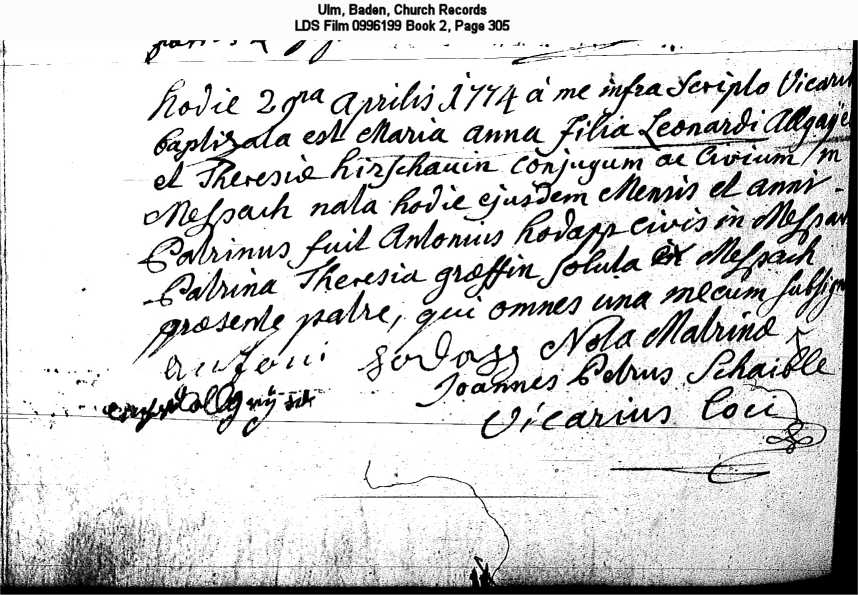 Ulm, Baden, Church Records
LDS Film 0996199 Book 2, Page 305
hodie 2dna Aprilis 1774 à me infra Scripto Vicari
baptizata est Maria anna Filia Leonardi Allgaÿe
et Theresiæ hirschauin Conjugum ac Civium in
Messbach nata hodie ejusdem Mensis et anni
Patrinus fuit Antonius hodapp civis in Messba
Patrina Theresia græffin soluta in Messbach
præsente patre, qui omnes una mecum subsign
antoni hodapp Nota Matrinæ
Joannes Petrus Schaible
Vicarius Loci